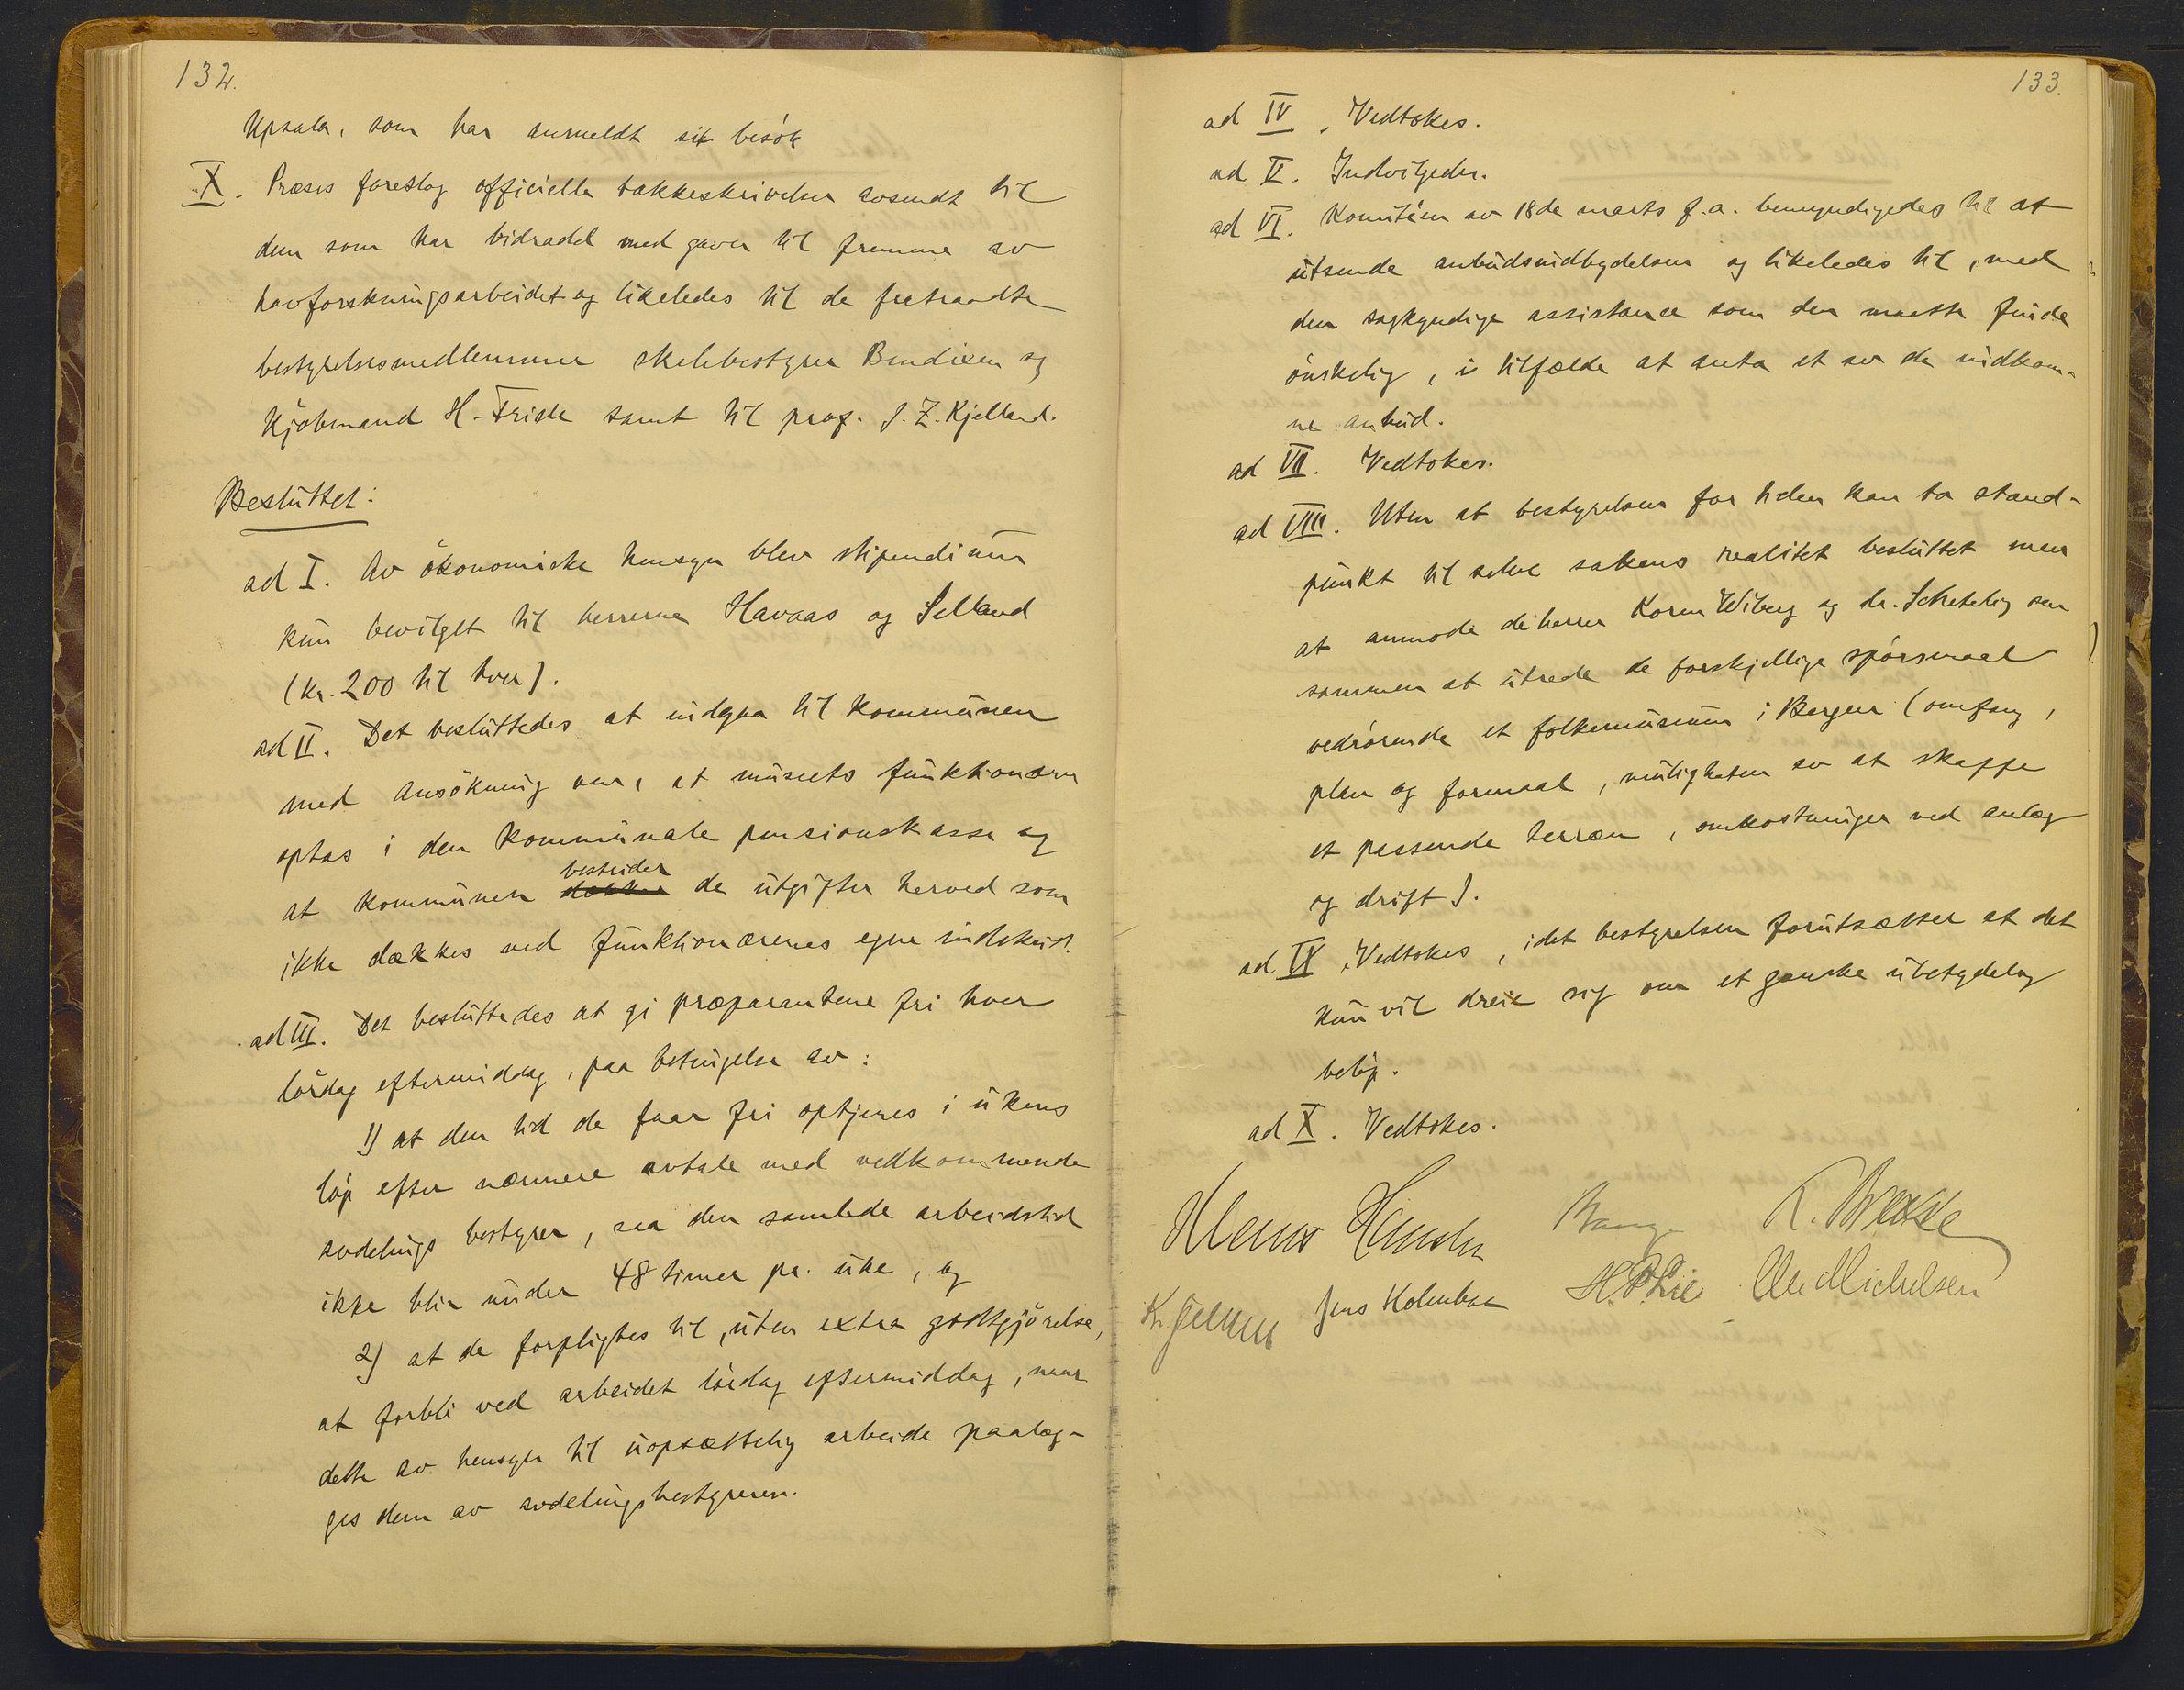 132.
Upsala, som har anmeldt sit besök
X. Præses foreslog officielle takkeskrivelser avsendt til
dem som har bidradd med gaver til fremme av
havforskningsarbeidet og likeledes til de fratraadte
bestyrelsesmedlemmer skolebestyrer Bendixen og
kjöbmand H. Friele samt til prof. J. Z. Kjelland.
Besluttet:
ad I. Av ökonomiske hensyn blev stipendium
kun bevilget til herrerne Havaas og Selland
(kr. 200 til hver).
ad II. Det besluttedes at indgaa til kommunen
med ansökning om, at museets funktionærer
optas i den kommunale pensionskasse og
bestrider
at kommunen dækker de utgifter herved som
ikke dækkes ved funktionærenes egne indskud.
ad III. Det besluttedes at gi præparantene fri hver
lördag eftermiddag, paa betingelse av:
1) at den tid de faar fri optjenes i ukens
löp efter nærmere avtale med vedkommende
avdelings bestyrer, saa den samlede arbeidstid
ikke blir under 48 timer pr. uke, og
2) at de forpligtes til, uten extra godtgjörelse,
at forbli ved arbeidet lördag eftermiddag, naar
dette av hensyn til uopsættelig arbeide paalæg-
ges dem av avdelingsbestyreren.
133.
ad IV. Vedtokes.
ad V. Indvilgedes.
ad VI. Komitéen av 18de marts f.a. bemyndigedes til at
utsende anbudsindbydelsen og likeledes til, med
den sagkyndige assistance som den maatte finde
önskelig, i tilfælde at anta et av de indkom-
ne anbud.
ad VII. Vedtokes.
ad VIII. Uten at bestyrelsen for tiden kan ta stand-
punkt til selve sakens realitet besluttet man
at anmode de herrer Koren Wiberg og dr. Schetelig om
sammen at utrede de forskjellige spörsmaal
vedrörende et folkemuseum i Bergen (omfang,
plan og formaal, muligheten av at skaffe
et passende terræn, omkostninger ved anlæg
og drift).
ad IX. Vedtokes, idet bestyrelsen forutsætter at det
kun vil dreie sig om et ganske ubetydelig
belöp.
ad X. Vedtokes.
Klaus Hanssen
Jens Holmboe
Chr Michelsen